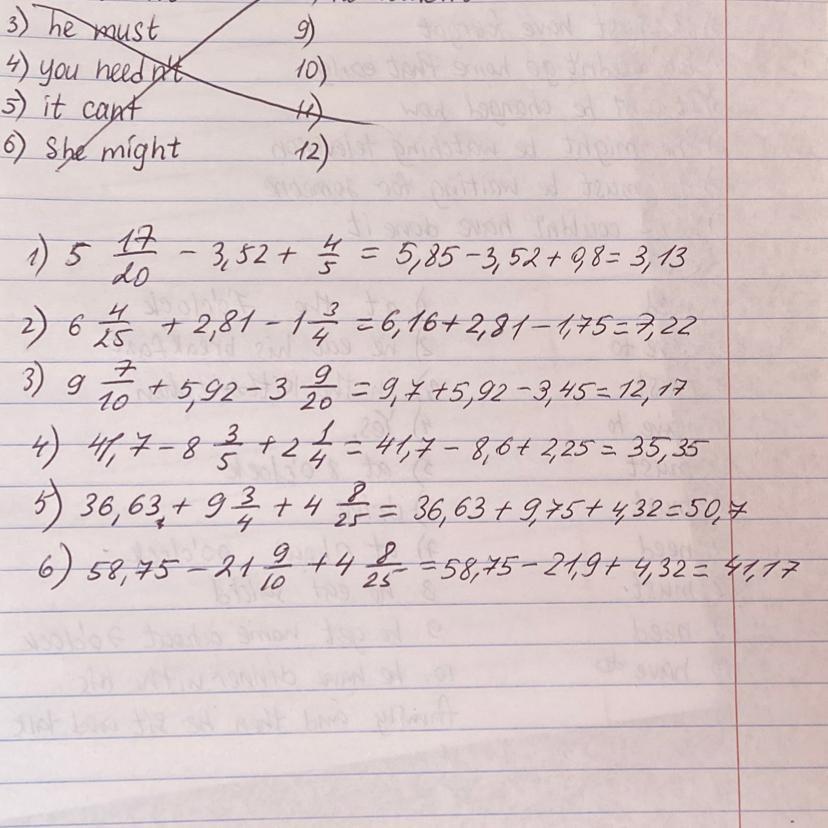 3) he must 9)
4) you needn't 10)
5) it can't 11)
6) She might 12)
1) 5 17/20 - 3,52 + 4/5 = 5,85 - 3,52 + 0,8 = 3,13
2) 6 4/25 + 2,81 - 1 3/4 = 6,16 + 2,81 - 1,75 = 7,22
3) 9 7/10 + 5,92 - 3 9/20 = 9,7 + 5,92 - 3,45 = 12,17
4) 41,7 - 8 3/5 + 2 1/4 = 41,7 - 8,6 + 2,25 = 35,35
5) 36,63 + 9 3/4 + 4 8/25 = 36,63 + 9,75 + 4,32 = 50,7
6) 58,75 - 21 9/10 + 4 8/25 = 58,75 - 21,9 + 4,32 = 41,17